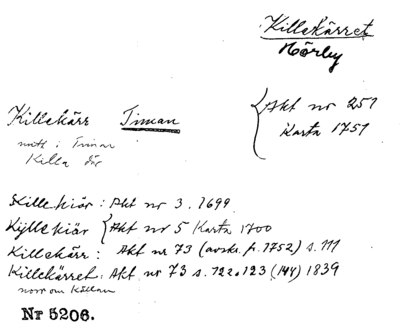 Killekärret
Hörby
Killekärr Timan
{Akt nr 251
Karta 1751
nutt i Timan
Killa där
Kille kiär: Akt nr 3. 1699
Kylle kiär {Akt nr 5 Karta 1700
Killekärr: Akt nr 73 (avskr. fr. 1752) s. 111
Killekärret: Akt nr 73 s. 122 o 123 (148) 1839
norr om Källan
Nr 5206.